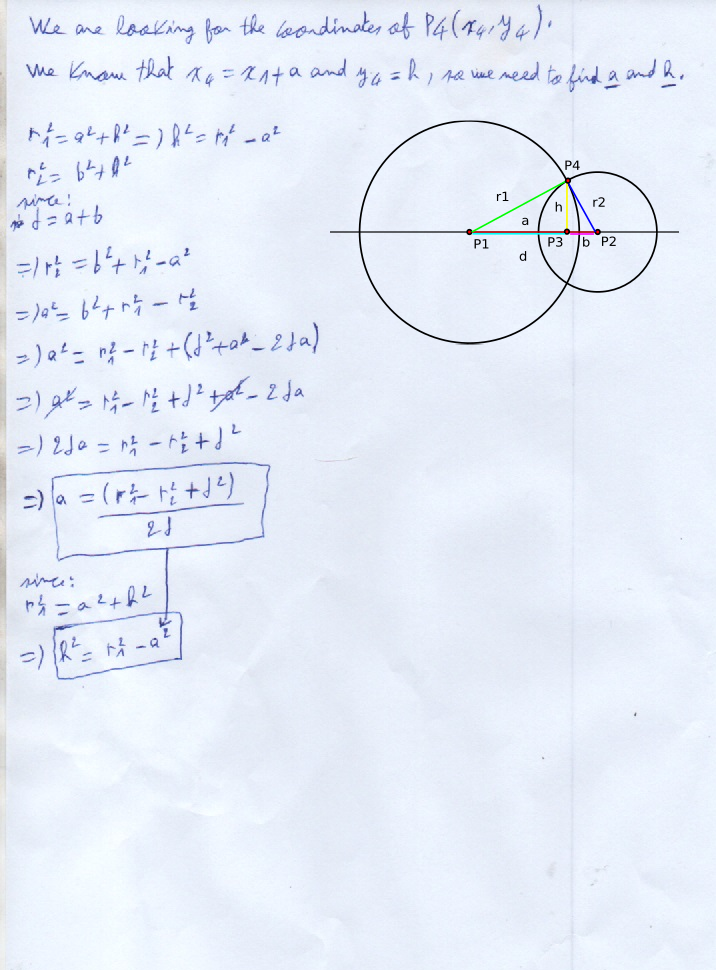 We are looking for the coordinates of P4(x₄, y₄).
We know that x₄ = x1 + a and y₄ = h, so we need to find a and h.
r₁² = a² + h² =) h² = r₁² - a²
r₂² = b² + h²
since:
d = a + b
=) r₂² = b² + r₁² - a²
=) a² = b² + r₁² - r₂²
=) a² = r₁² - r₂² + (d² + a² - 2da)
=) a² = r₁² - r₂² + d² + a² - 2da
=) 2da = r₁² - r₂² + d²
=) a = (r₁² - r₂² + d²)
2d
since:
r₁² = a² + h²
=) h² = r₁² - a²
P4
r1
r2
h
a
P1
P3
b
P2
d